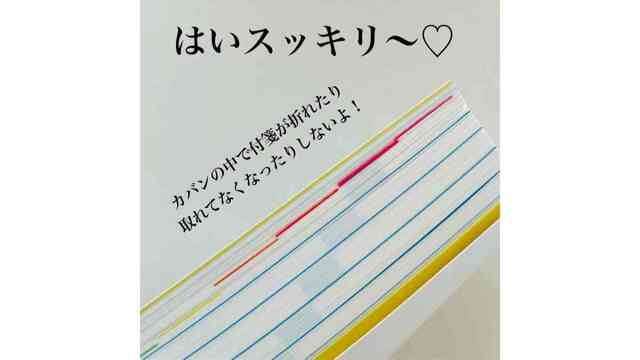 はいスッキリ〜♡
カバンの中で付箋が折れたり
取れてなくなったりしないよ！